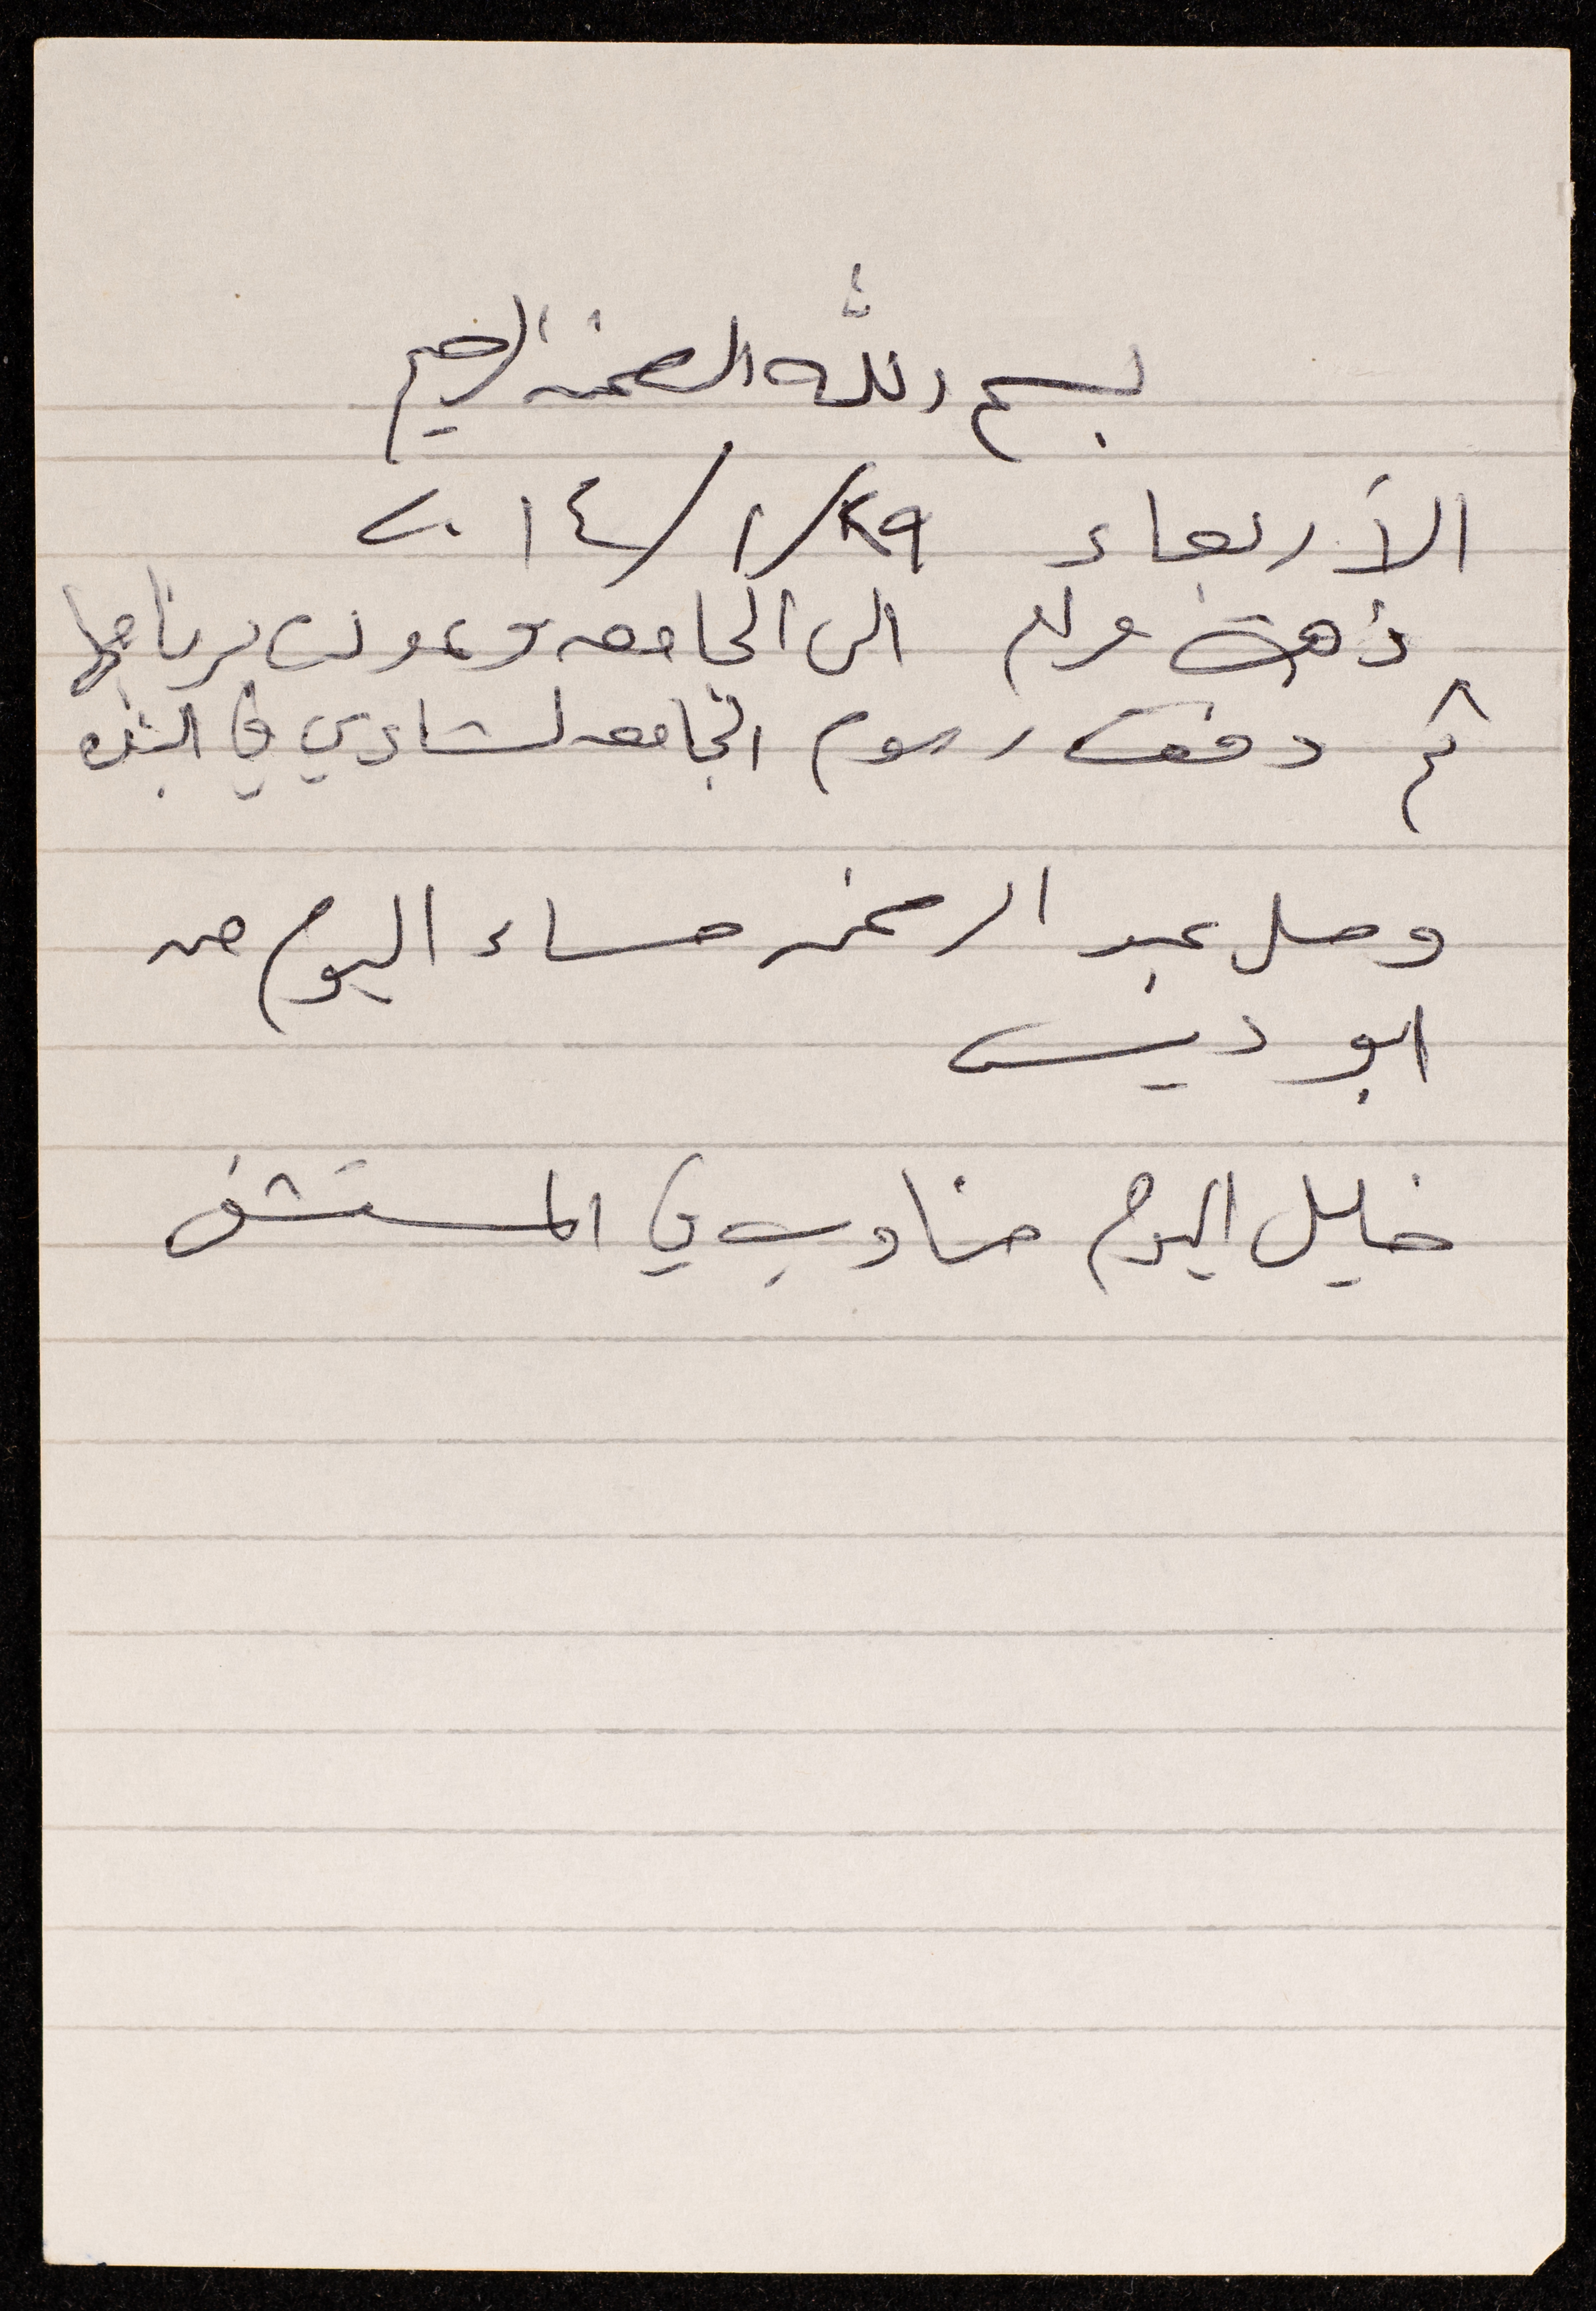 بسم الله الرحمن الرحيم
الأربعاء ٢٩/١/٢٠١٤
ذهبت مرام الى الجامعه وعدلت برنامجها
ثم دفعت رسوم الجامعه لشادي في البنك
وصل عبد الرحمن مساء اليوم من
ابو ديس
خليل اليوم مناوب في المستشفى